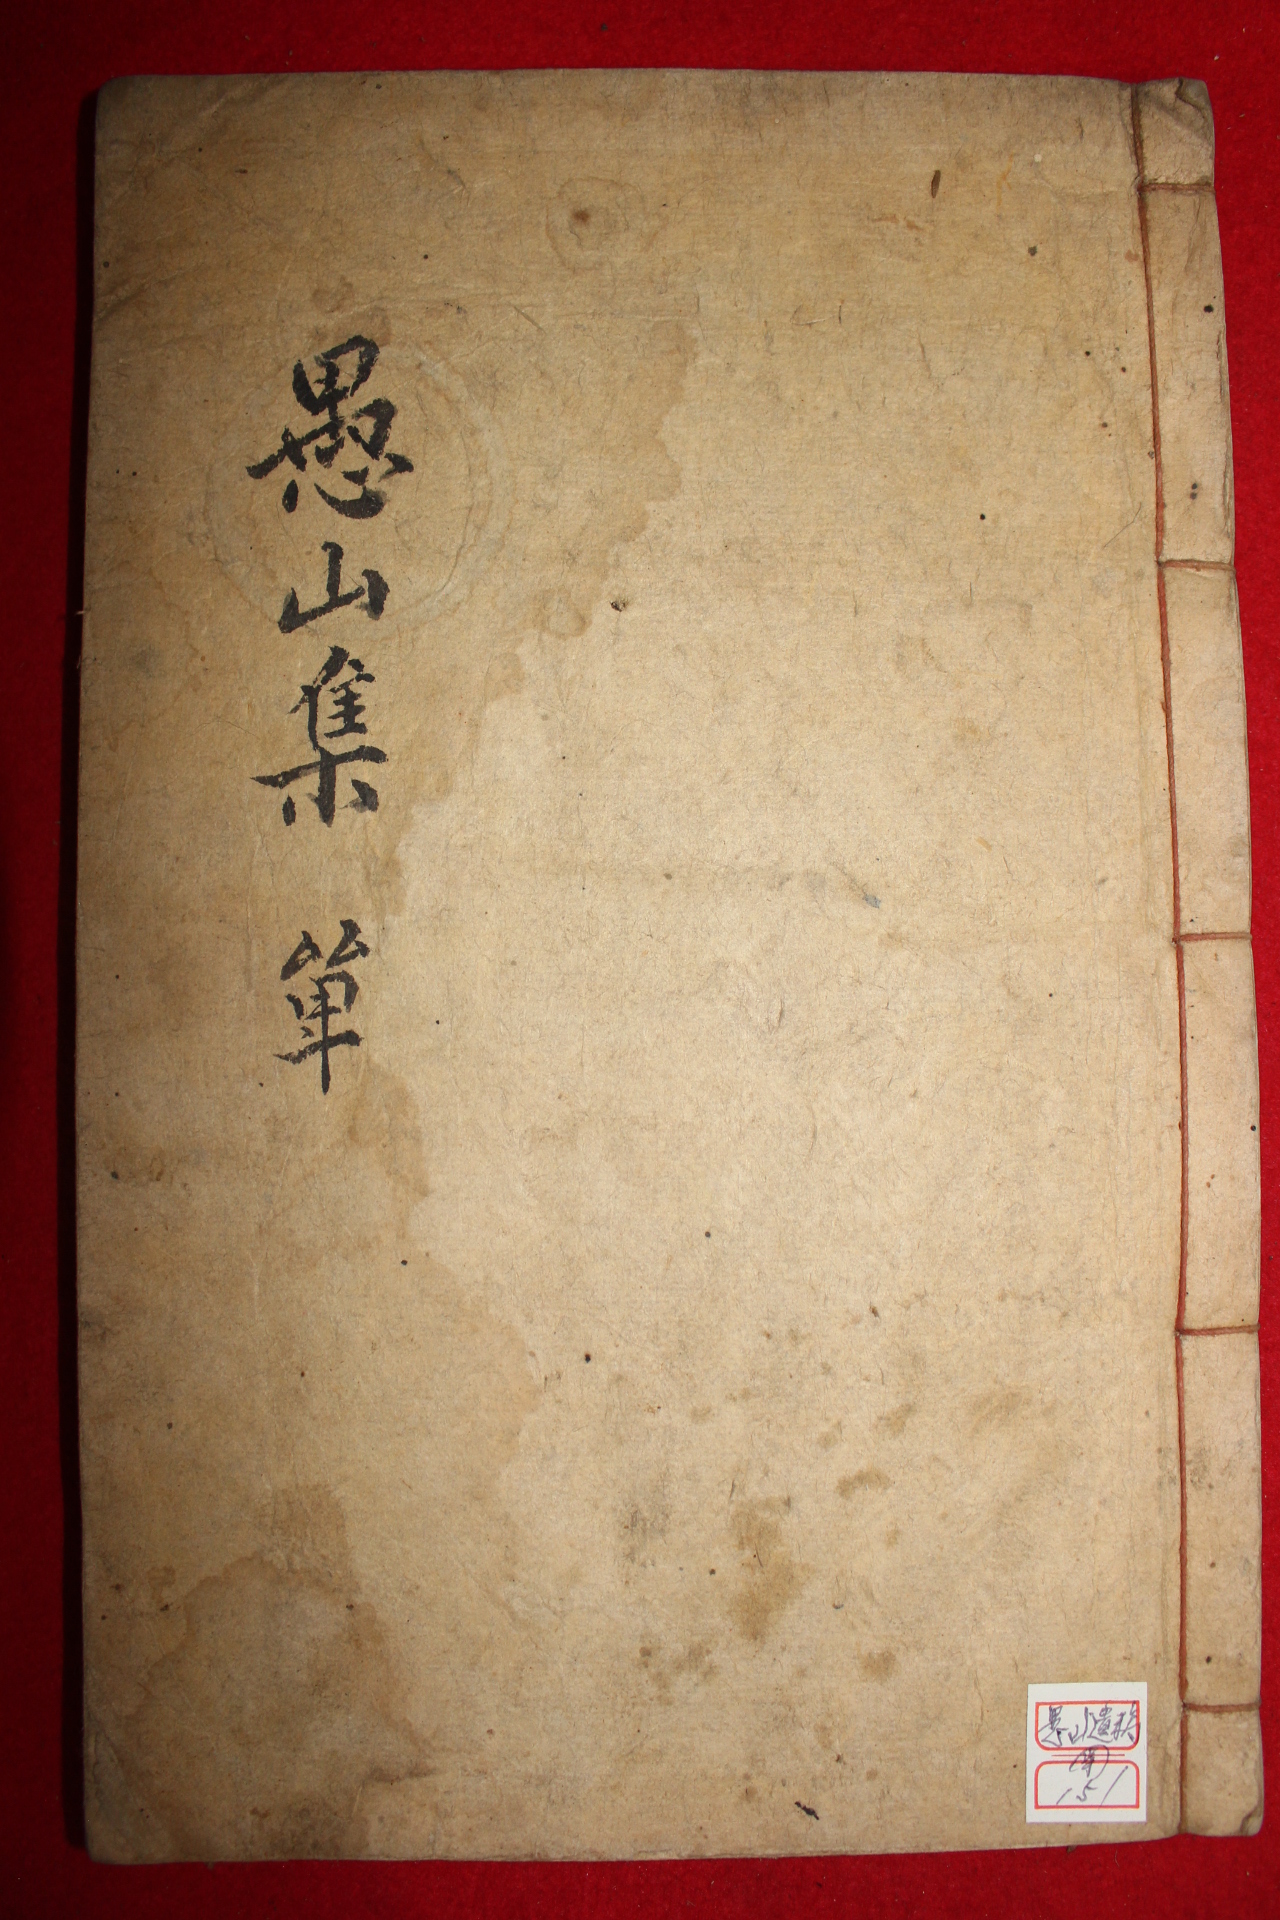 愚山集 單
愚山遺稿
151